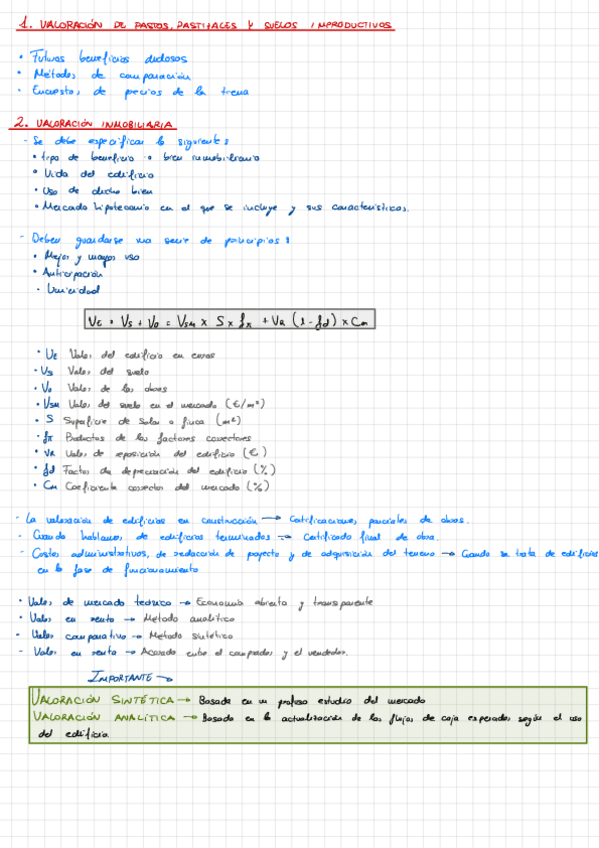 1. VALORACIÓN DE PASTOS, PASTIZALES Y SUELOS IMPRODUCTIVOS
• Futuros beneficios dudosos
• Métodos de comparación
• Encuestas de precios de la tierra
2. VALORACIÓN INMOBILIARIA
- Se debe especificar lo siguiente:
• tipo de beneficio o bien inmobiliario
• Vida del edificio
• Uso de dicho bien
• Mercado hipotecario en el que se incluye y sus características.
- Deben guardarse una serie de principios:
• Mejor y mayor uso
• Anticipación
• Unicidad
VE = VS + VO = VSM x S x fπ + VR (1 - fd) x Cm
• VE Valor del edificio en euros
• VS Valor del suelo
• VO Valor de las obras
• VSM Valor del suelo en el mercado (€/m²)
• S Superficie de solar o finca (m²)
• fπ Productos de los factores correctores
• VR Valor de reposición del edificio (€)
• fd Factor de depreciación del edificio (%)
• Cm Coeficiente corrector del mercado (%)
- La valoración de edificios en construcción → Certificaciones parciales de obras.
- Cuando hablamos de edificios terminados → Certificado final de obra.
- Costes administrativos, de redacción de proyecto y de adquisición del terreno → Cuando se trata de edificios
en la fase de funcionamiento
• Valor de mercado teórico → Economía abierta y transparente
• Valor en renta → Método analítico
• Valor comparativo → Método sintético
- Valor en venta → Acordado entre el comprador y el vendedor.
IMPORTANTE →
VALORACIÓN SINTÉTICA → Basada en un profuso estudio del mercado
VALORACIÓN ANALÍTICA → Basada en la actualización de los flujos de caja esperados según el uso
del edificio